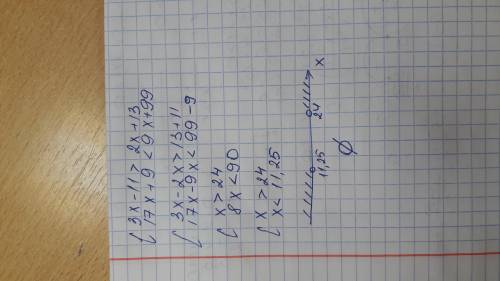 { 3x-11 > 2x+13
17x+9 < 9x+99
{ 3x-2x > 13+11
17x-9x < 99-9
{ x > 24
8x < 90
{ x > 24
x < 11,25
11,25 24 x
Ø